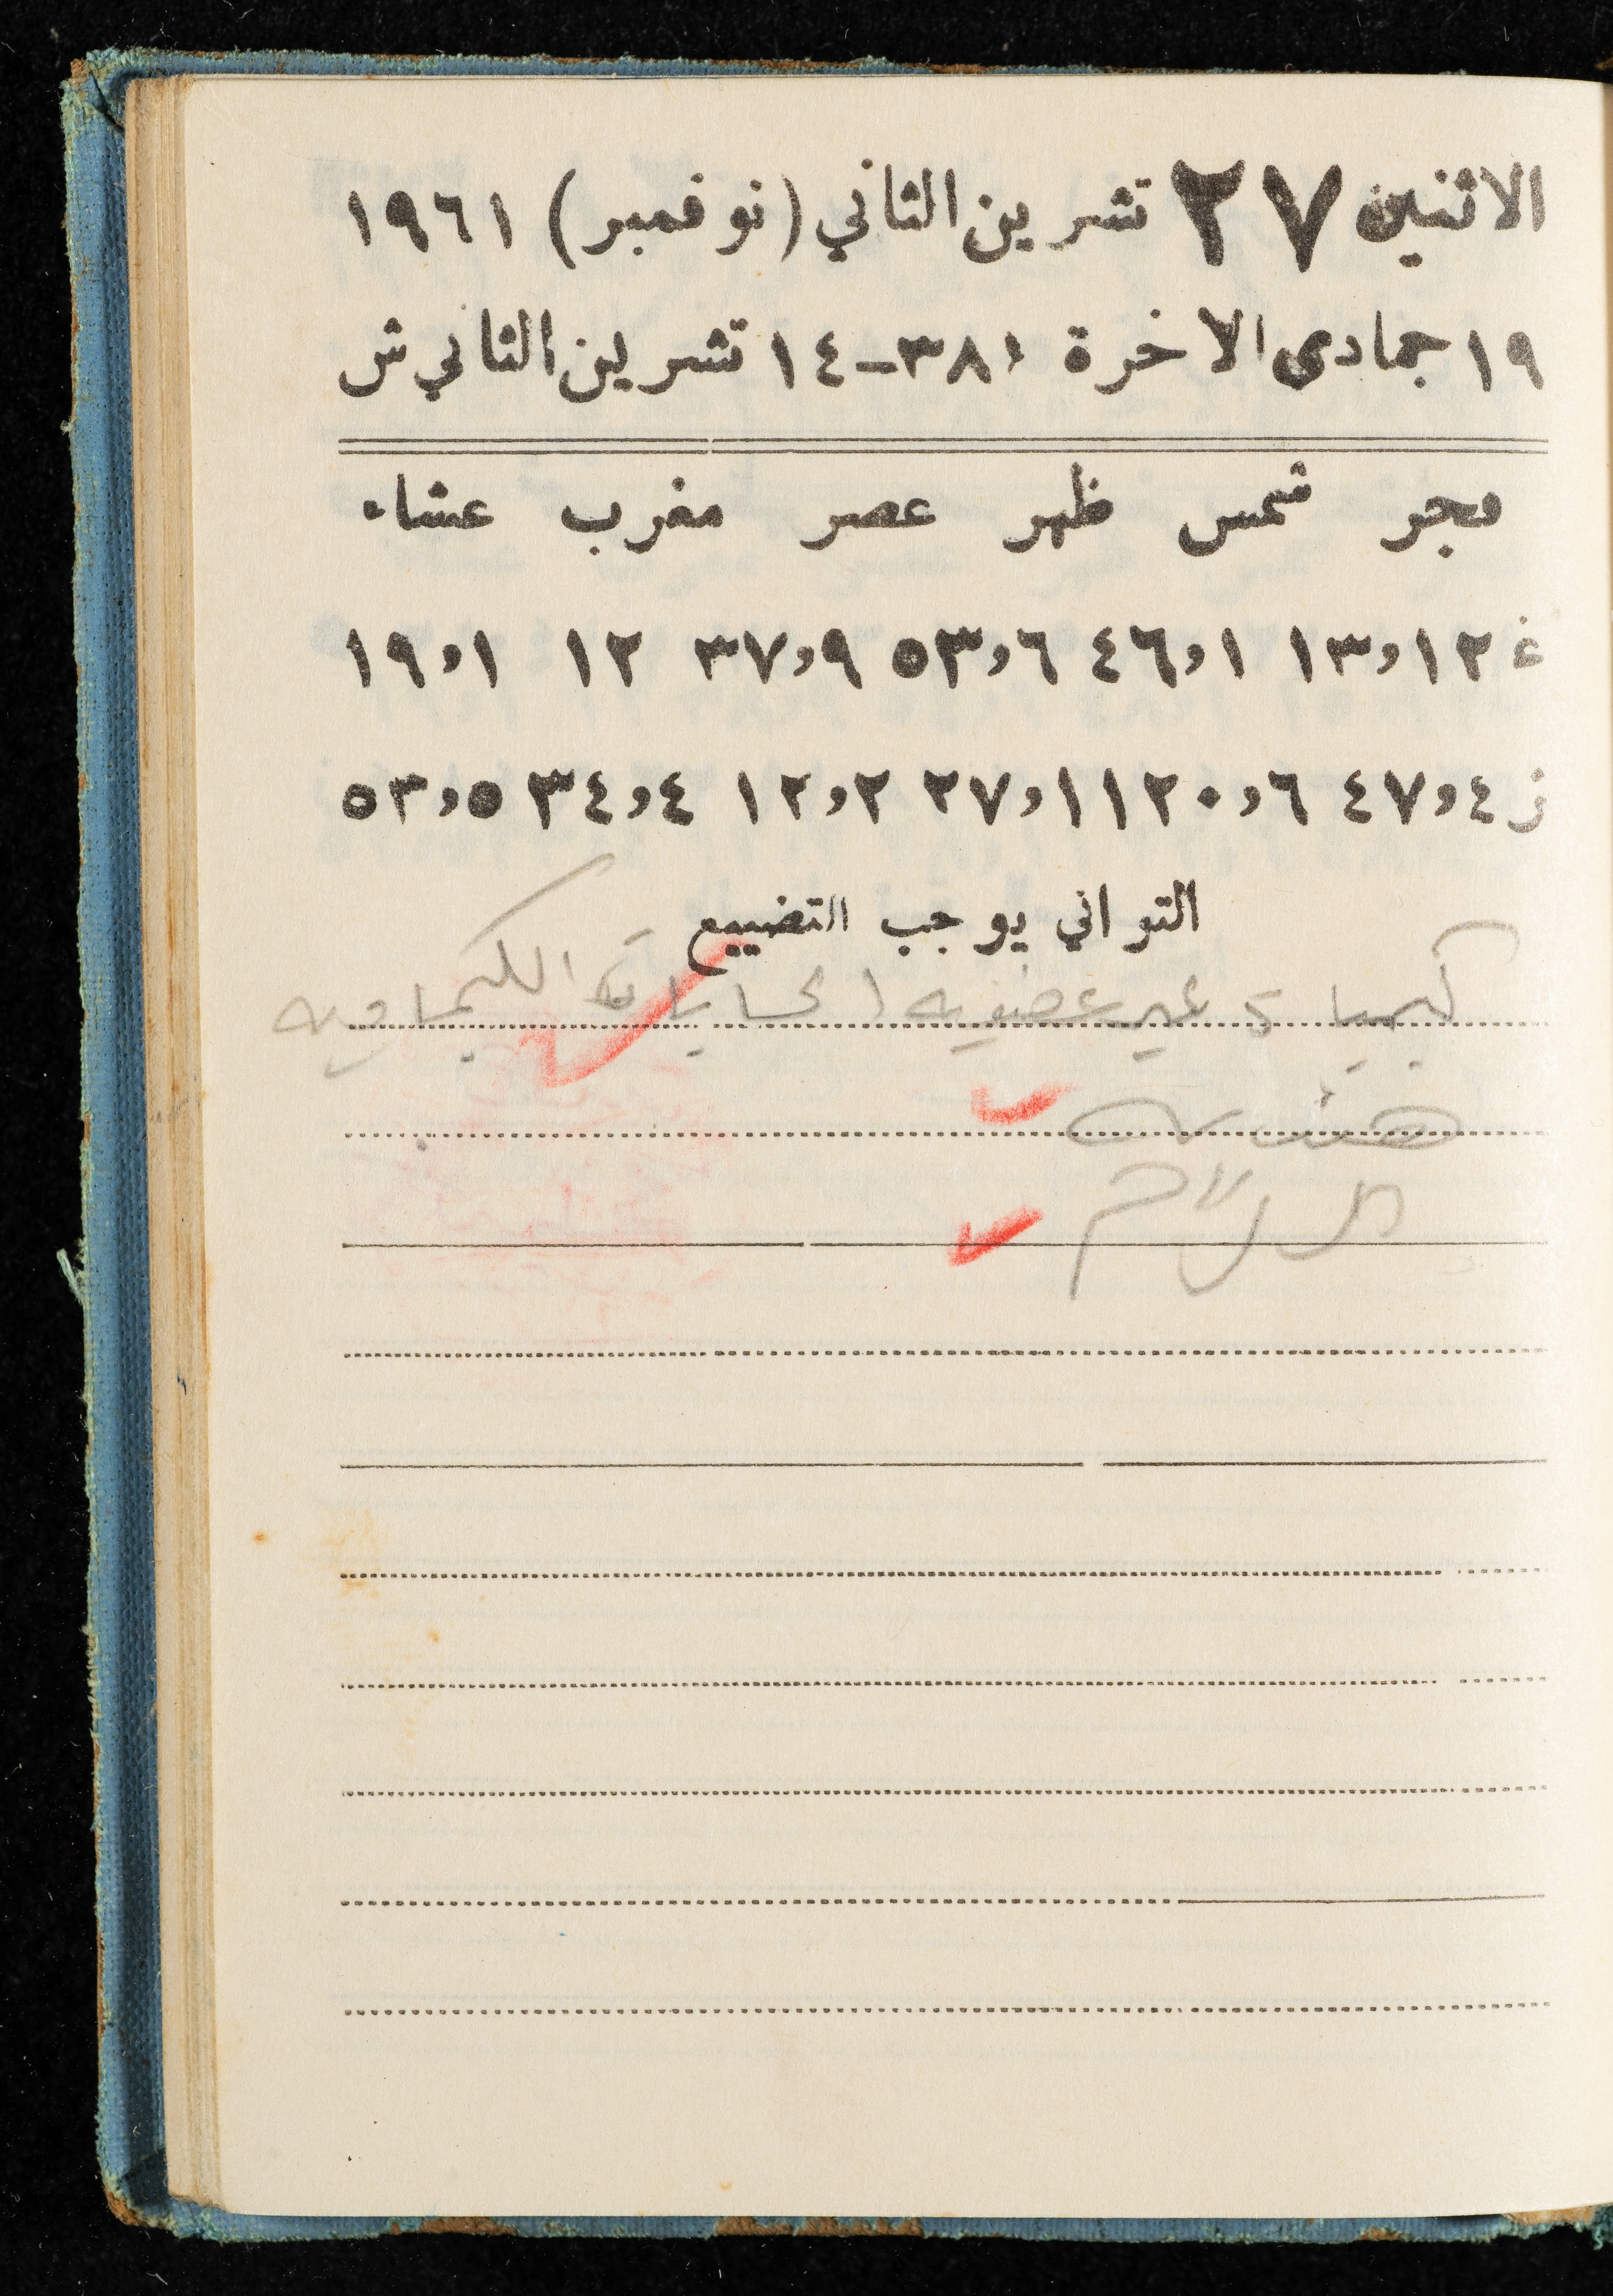 الاثنين ٢٧ تشرين الثاني (نوفمبر) ١٩٦١
١٩ جمادى الاخرة ٣٨١-١٤ تشرين الثاني ش
فجر شمس ظهر عصر مغرب عشاء
غ ١٢،١٣ ١،٤٦ ٦،٥٣ ٩،٣٧ ١٢ ١،١٩
ز ٤،٤٧ ٦،٢٠ ١١،٢٧ ٢،١٢ ٤،٣٤ ٥،٥٣
التواني يوجب التضييع
كيمياء غير عضوية الحسابات الكيماوية